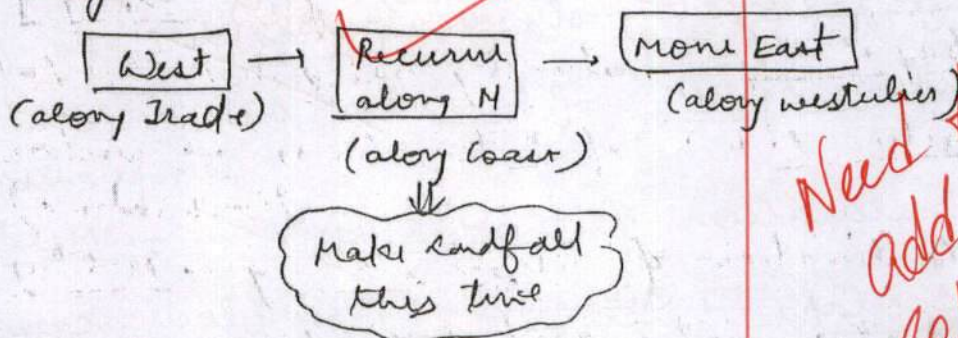 West → Recurve along N → Move East
(along Trade) (along Coast) (along westerlies)
Make landfall
this time
Need
add